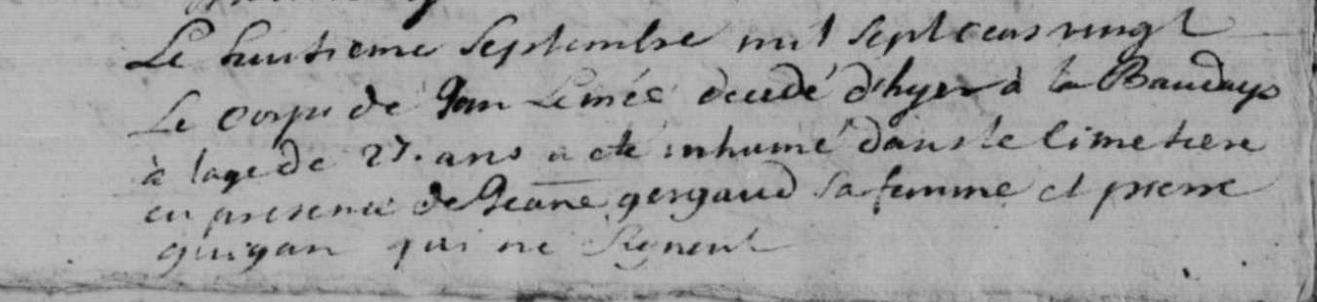 Le huitieme Septembre mil Septcens vingt
Le corps de Jan Lemée decedé d'hyer à la Baudays
à lage de 27. ans a été inhumé dans le Cimetiere
en presence de Jeanne gergaud sa femme et pierre
guigan qui ne Signent